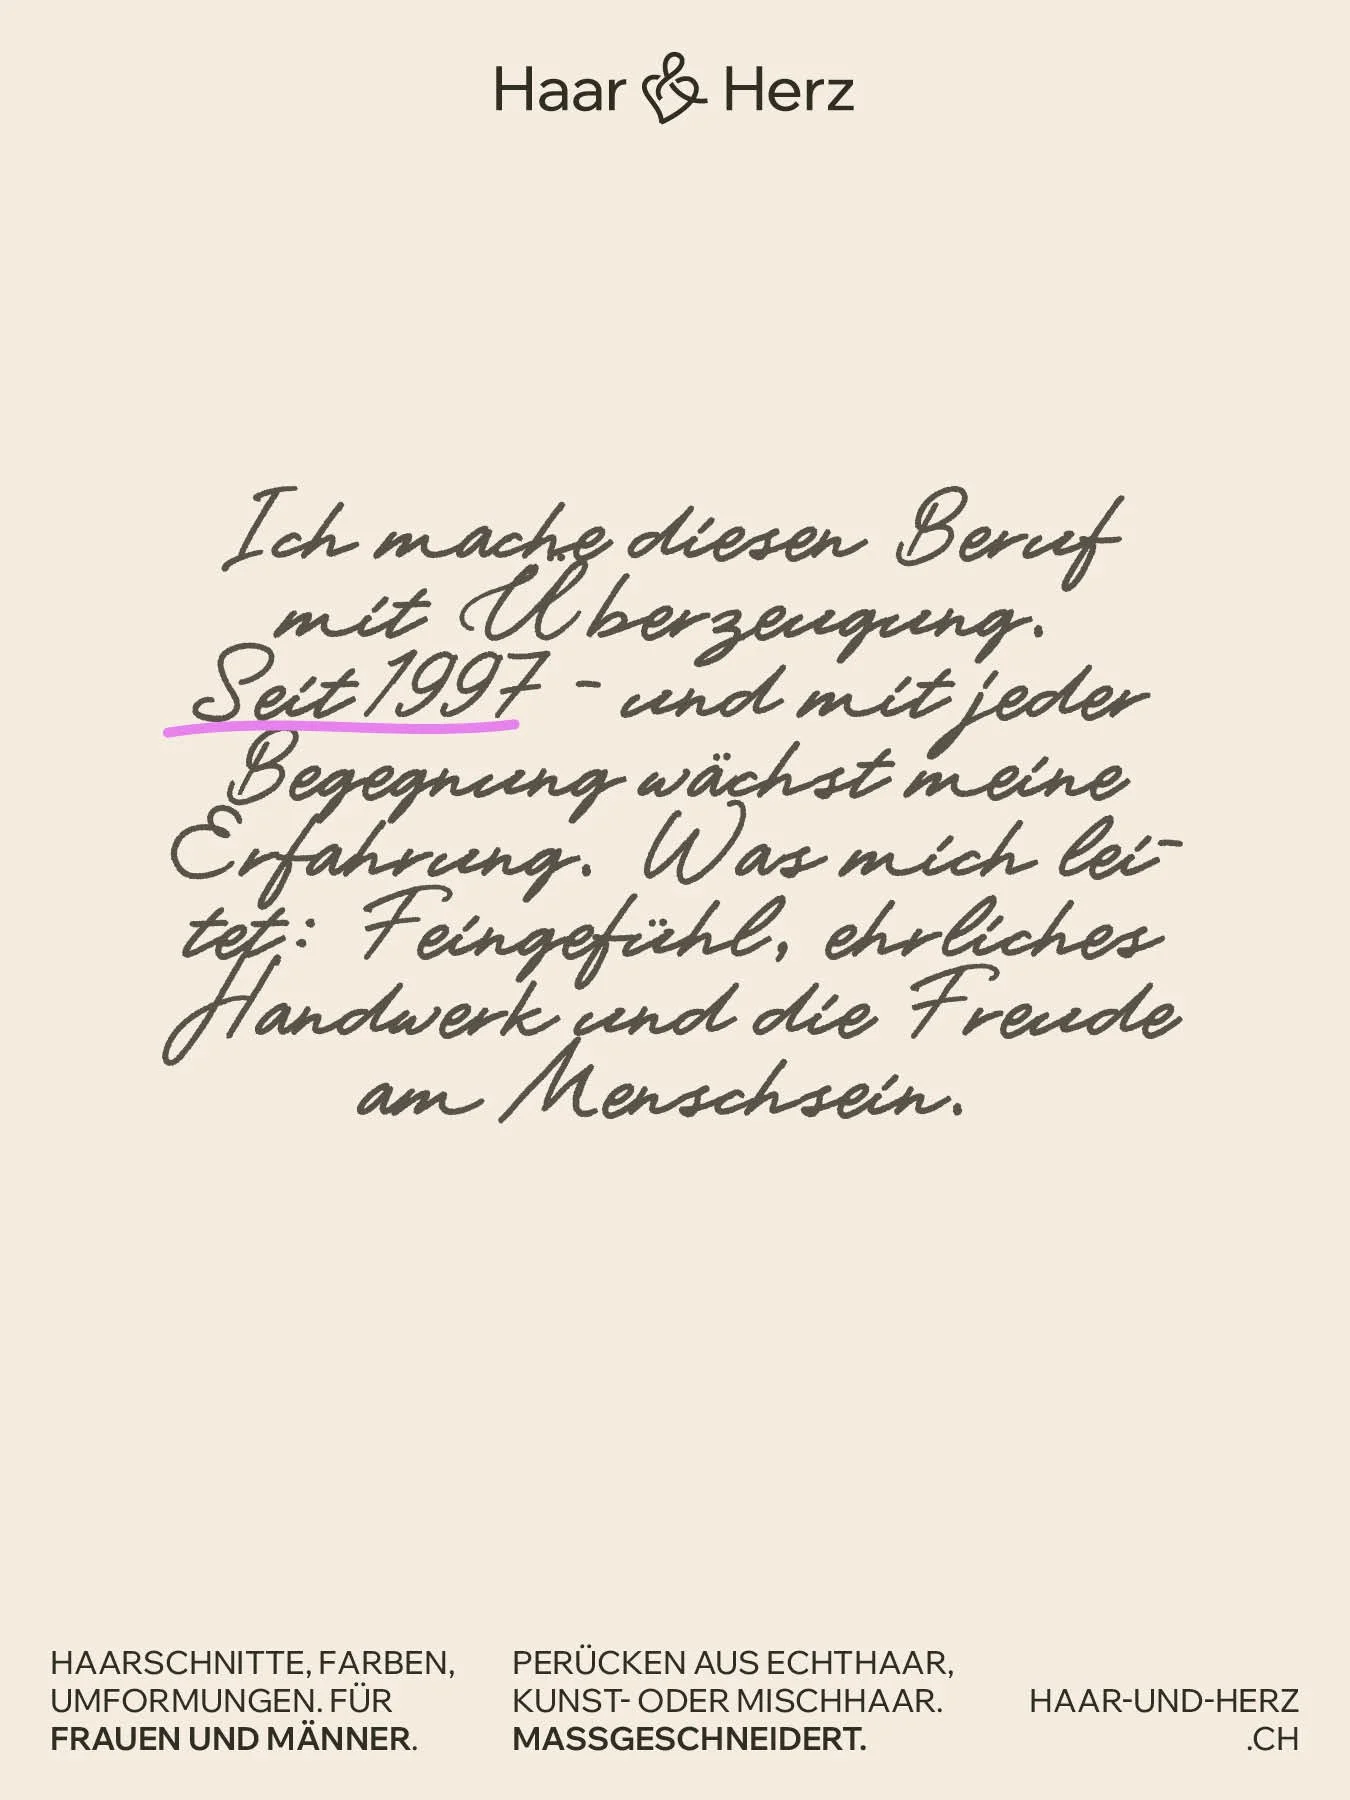 Haar & Herz
Ich mache diesen Beruf
mit Überzeugung.
Seit 1997 - und mit jeder
Begegnung wächst meine
Erfahrung. Was mich lei-
tet: Feingefühl, ehrliches
Handwerk und die Freude
am Menschsein.
HAARSCHNITTE, FARBEN,
UMFORMUNGEN. FÜR
FRAUEN UND MÄNNER.
PERÜCKEN AUS ECHTHAAR,
KUNST- ODER MISCHHAAR.
MASSGESCHNEIDERT.
HAAR-UND-HERZ
.CH